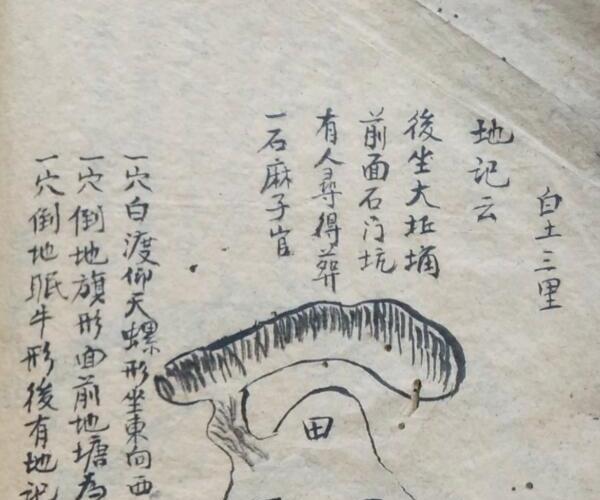 白土三里
地记云
後坐大坵埇
前面石门坑
有人尋得葬
一石麻子官
一穴白渡仰天螺形坐東向西
一穴倒地旗形面前地塘為
一穴倒地眠牛形後有地记
田